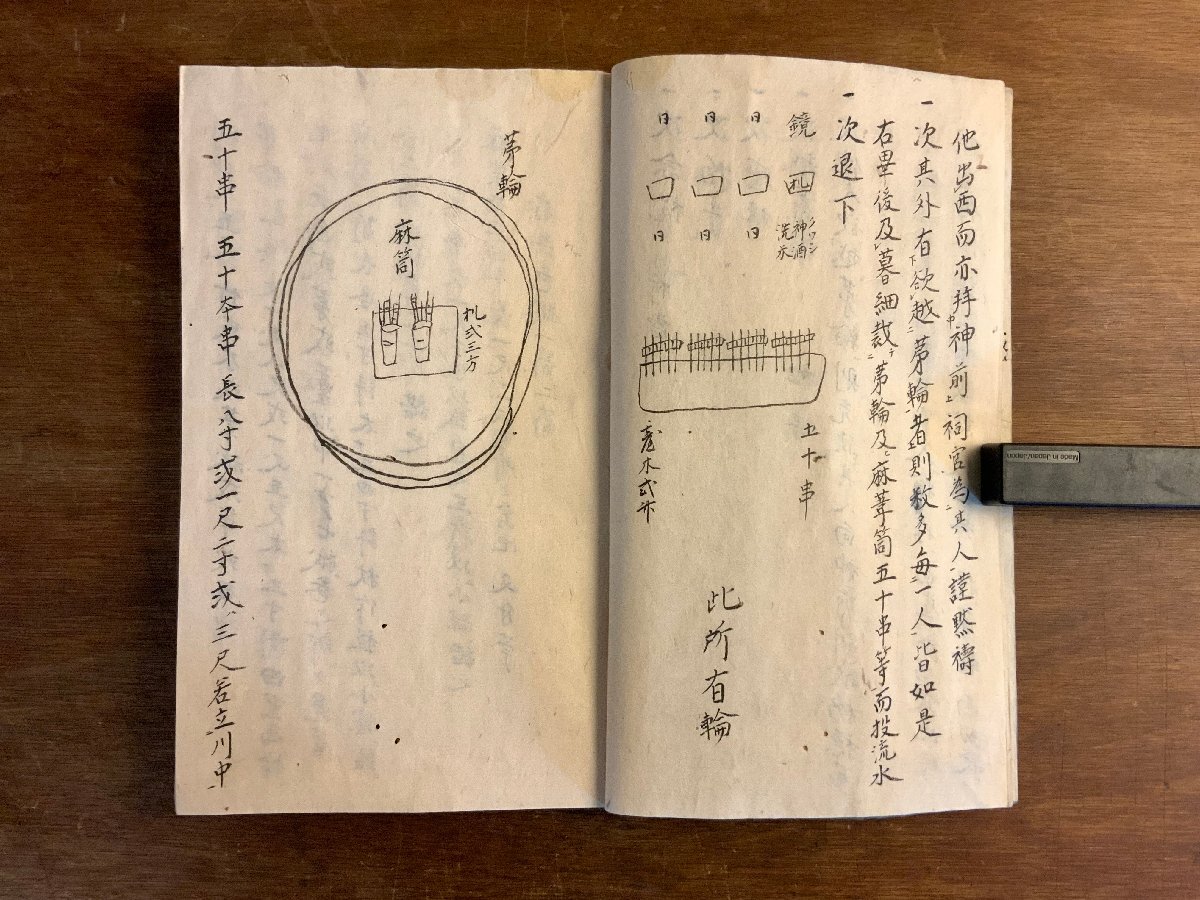 他出西而亦持神前祠官為其人謹黙禱
一次其外有欲越茅輪者則数多每一人皆如是
右畢後及暮細裁茅輪及麻葦筒五十串等而投流水
一次退下
鏡 札 神酒 洗米
日 日
日 日
日 日
五十串
此所有輪
茅輪
麻筒
札弐三方
五十串 五十本串長八寸或一尺二寸或三尺若立川中
Made in Japan/Japon